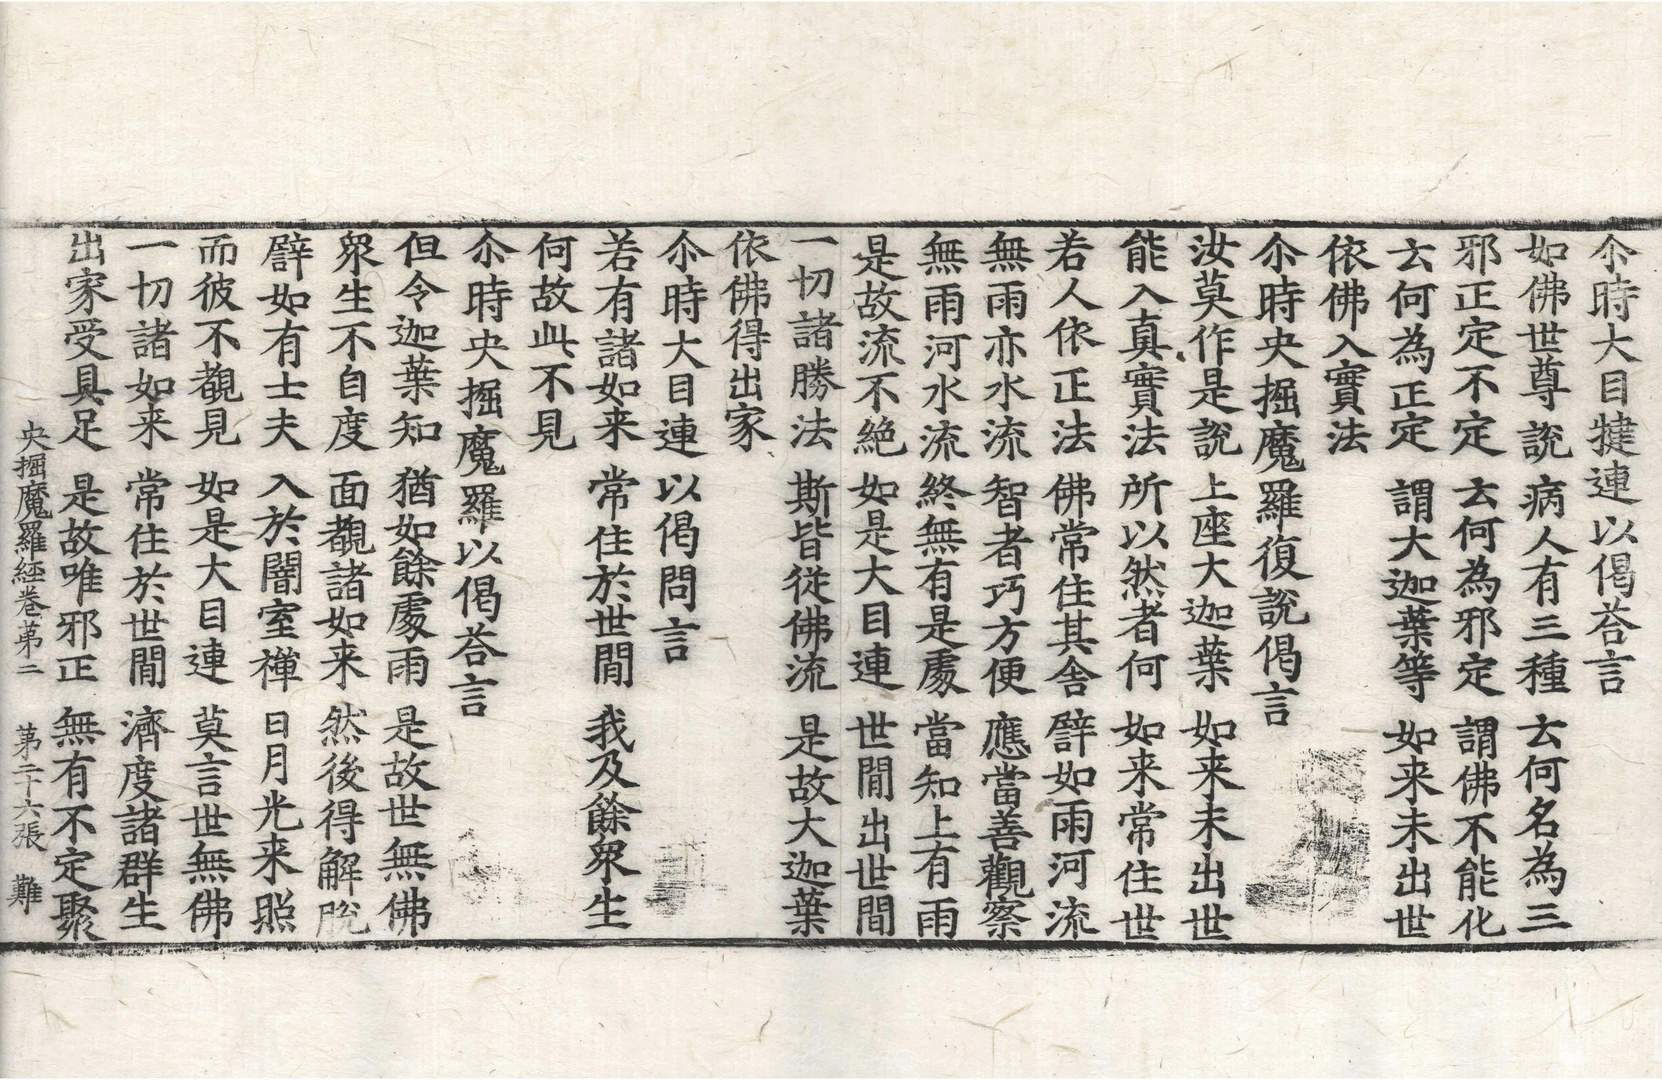 尒時大目揵連以偈荅言
如佛世尊說 病人有三種 云何名為三
邪正定不定 云何為邪定 謂佛不能化
云何為正定 謂大迦葉等 如来未出世
依佛入實法
尒時央掘魔羅復說偈言
汝莫作是說 上座大迦葉 如来未出世
能入真實法 所以然者何 如来常住世
若人依正法 佛常住其舎 譬如雨河流
無雨亦水流 智者巧方便 應當善觀察
無雨河水流 終無有是處 當知上有雨
是故流不絶 如是大目連 世閒出世閒
一切諸勝法 斯皆從佛流 是故大迦葉
依佛得出家
尒時大目連以偈問言
若有諸如来 常住於世閒 我及餘眾生
何故此不見
尒時央掘魔羅以偈荅言
但令迦葉知 猶如餘處雨 是故世無佛
眾生不自度 面覩諸如来 然後得解脫
譬如有士夫 入於闇室禪 日月光来照
而彼不覩見 如是大目連 莫言世無佛
一切諸如来 常住於世閒 濟度諸群生
出家受具足 是故唯邪正 無有不定聚
央掘魔羅経卷苐二 第二十六張 難